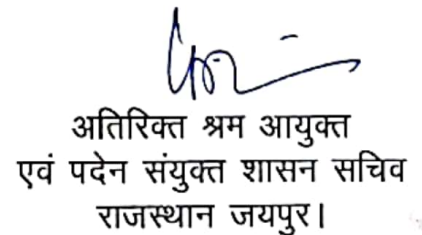 अतिरिक्त श्रम आयुक्त
एवं पदेन संयुक्त शासन सचिव
राजस्थान जयपुर।